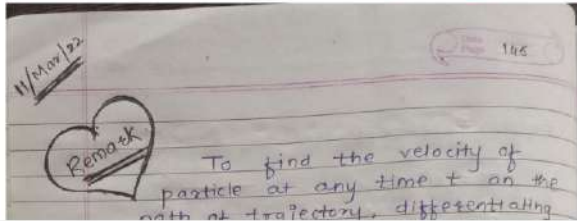 11/Mar/22
Date
Page 145
Remark
To find the velocity of
particle at any time t on the
path of trajectory, differentiating